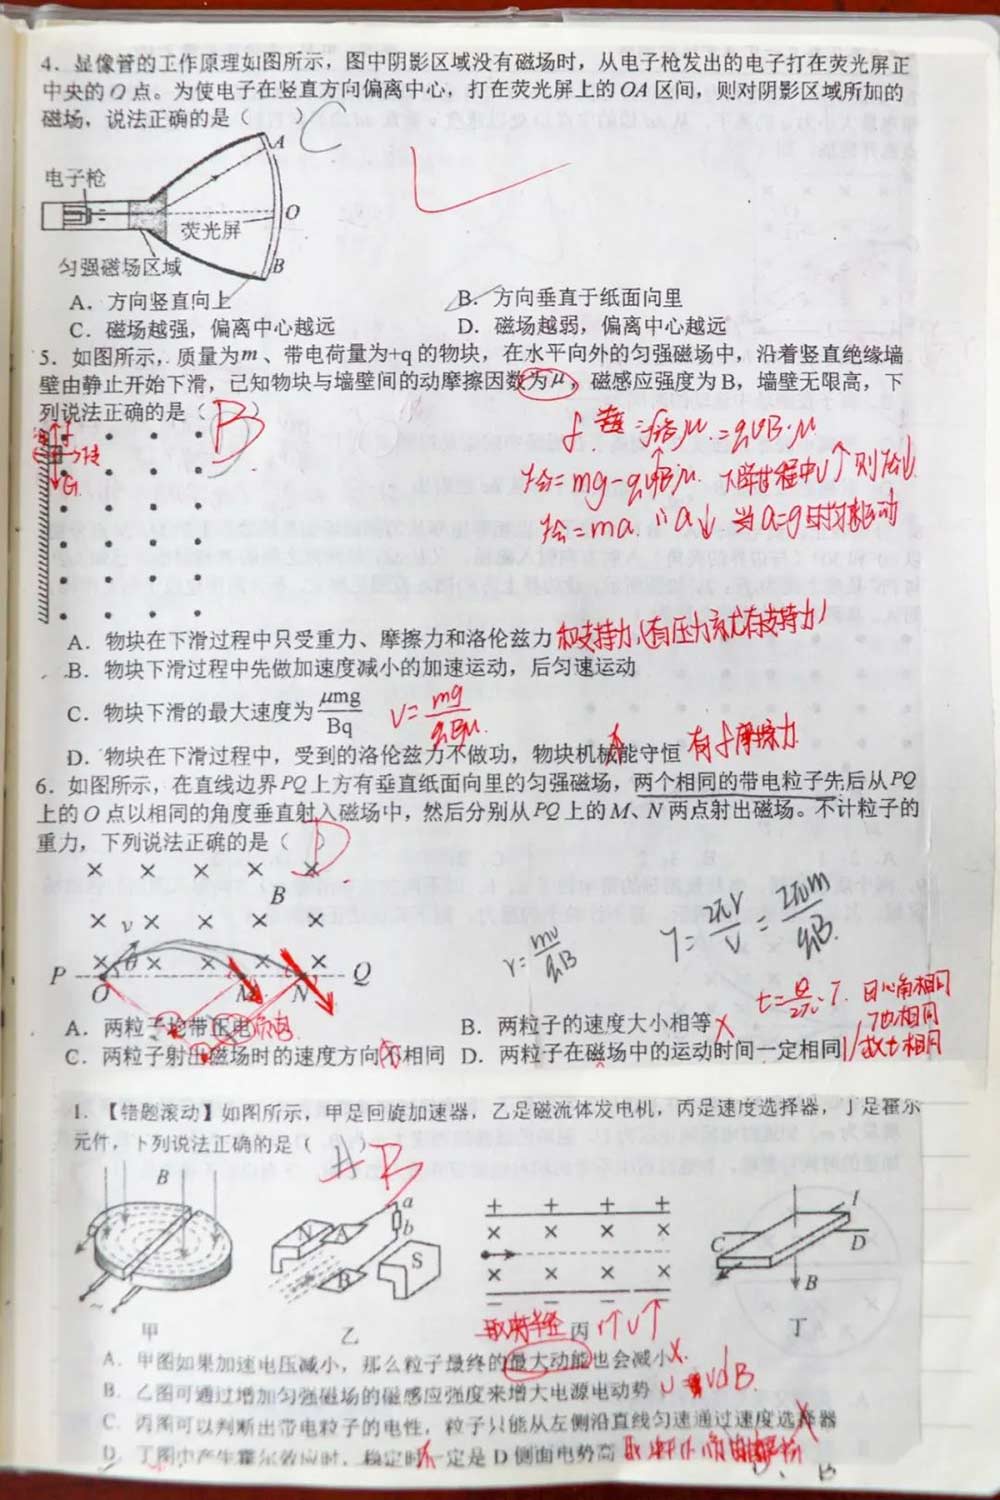 4．显像管的工作原理如图所示，图中阴影区域没有磁场时，从电子枪发出的电子打在荧光屏正
中央的O点。为使电子在竖直方向偏离中心，打在荧光屏上的OA区间，则对阴影区域所加的
磁场，说法正确的是（ C
A
电子枪
O
荧光屏
B
匀强磁场区域
A．方向竖直向上
B．方向垂直于纸面向里
C．磁场越强，偏离中心越远
D．磁场越弱，偏离中心越远
5．如图所示，质量为m、带电荷量为+q的物块，在水平向外的匀强磁场中，沿着竖直绝缘墙
壁由静止开始下滑，已知物块与墙壁间的动摩擦因数为μ，磁感应强度为B，墙壁无限高，下
列说法正确的是（ B ）
=qvB·μ
F合=mg-qvBμ. 下降过程中v↑则F合↓
F合=ma ∴a↓
G
A．物块在下滑过程中只受重力、摩擦力和洛伦兹力 和支持力(有压力就有支持力)
B．物块下滑过程中先做加速度减小的加速运动，后匀速运动
C．物块下滑的最大速度为 μmg/Bq V=mg/qBμ
D．物块在下滑过程中，受到的洛伦兹力不做功，物块机械能守恒 有f摩擦力
6．如图所示，在直线边界PQ上方有垂直纸面向里的匀强磁场，两个相同的带电粒子先后从PQ
上的O点以相同的角度垂直射入磁场中，然后分别从PQ上的M、N两点射出磁场。不计粒子的
重力，下列说法正确的是（ D ）
B
v
θ
P O M N Q
r=mv/qB
T=2πr/v=2πm/qB
t=θ/2π·T. 圆心角相同
T也相同
故t相同
A．两粒子均带正电 负电
B．两粒子的速度大小相等 X
C．两粒子射出磁场时的速度方向不相同
D．两粒子在磁场中的运动时间一定相同
1．【错题滚动】如图所示，甲是回旋加速器，乙是磁流体发电机，丙是速度选择器，丁是霍尔
元件，下列说法正确的是（ A B
B
N A a b S B
+ + + +
C I D B
甲
乙
丙
丁
取决半径 r↑v↑
A．甲图如果加速电压减小，那么粒子最终的最大动能也会减小 X.
B．乙图可通过增加匀强磁场的磁感应强度来增大电源电动势 vdB.
C．丙图可以判断出带电粒子的电性，粒子只能从左侧沿直线匀速通过速度选择器
D．丁图中产生霍尔效应时，稳定时一定是D侧面电势高